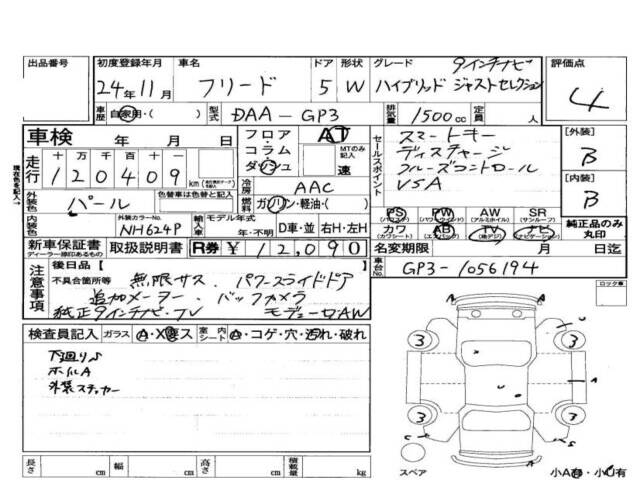 出品番号 初度登録年月 車名 ドア 形状 グレード 9インチナビ 評価点
24年11月 フリード 5 W ハイブリッド ジャストセレクション 4
車歴 自家用・( ) 型式 DAA-GP3 排気量 1500cc 定員 人
車検 年 月 日 フロア・コラム ダッシュ AT MTのみ記入 速
走行 十 万 千 百 十 一
120409 km
セールスポイント スマートキー
ディスチャージ
クルーズコントロール
VSA
[外装] B
[内装] B
冷房 AAC
外装色 パール 色替車は色替と記入 燃料 ガソリン・軽油・( )
内装色 外装カラーNo. NH624P 輸入車 モデル年式 年・不明 D車・並 右H・左H
PS (パワステ) PW (パワーウィンドウ) AW (アルミホイル) SR (サンルーフ)
カワ (カワシート) AB (エアバック) TV (地デジ) ナビ (ナビゲーション)
純正品のみ丸印
新車保証書 ディーラー捺印あるもの 取扱説明書 R券 ¥12,090
名変期限 月 日迄
車台No. GP3-1056194
注意事項 後日品 [ ]
不具合箇所等 無限サス、パワースライドドア
追加メーター、バックカメラ
純正9インチナビ・TV モデューロAW
ロック車
検査員記入 ガラス A・X・ス 室内シート A・コゲ・穴・汚れ・破れ
下廻りS
ホイルA
外装ステッカー
3 3
3 3
A
A
S
スペア
長さ cm 幅 cm 高さ cm 積載量 kg
小A有・小U有